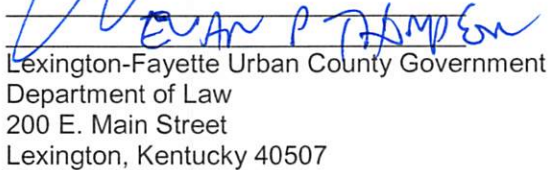 EVAN P THOMPSON
Lexington-Fayette Urban County Government
Department of Law
200 E. Main Street
Lexington, Kentucky 40507